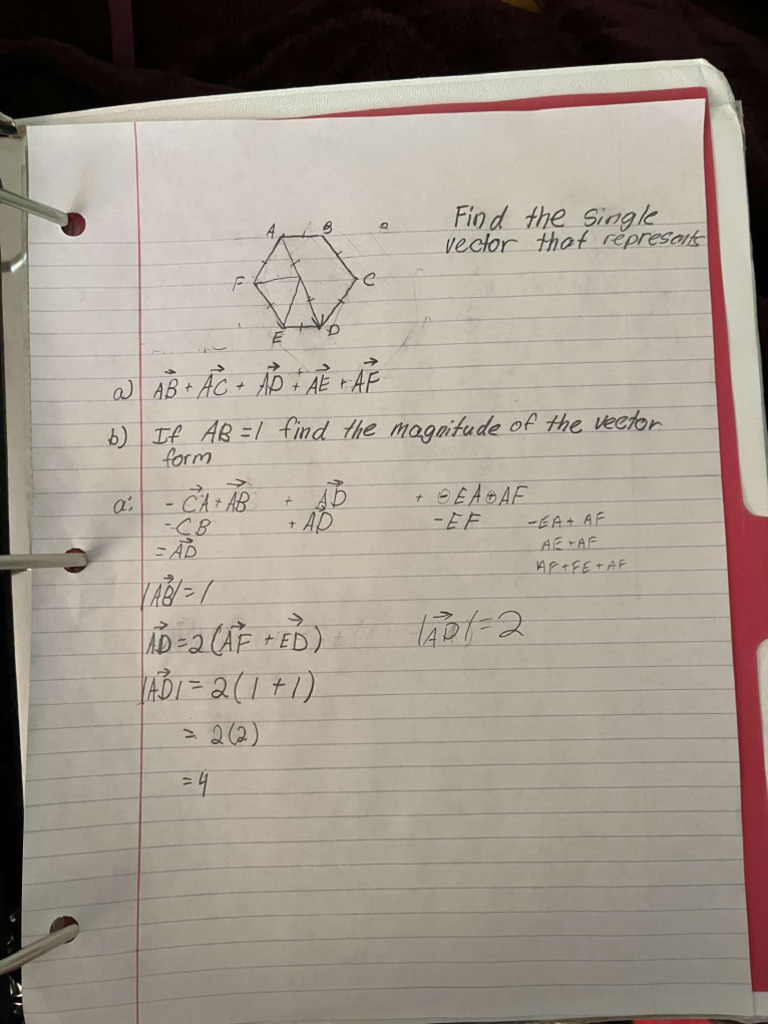 Find the single
vector that represents
A B
F C
E D
a) AB + AC + AD + AE + AF
b) If AB = 1 find the magnitude of the vector
form
a: - CA + AB + AD + ⊖EA⊕AF
-CB + AD -EF -EA + AF
= AD AE + AF
AF + FE + AF
|AB| = 1
AD = 2(AF + ED) |AD| = 2
|AD| = 2(1 + 1)
= 2(2)
= 4